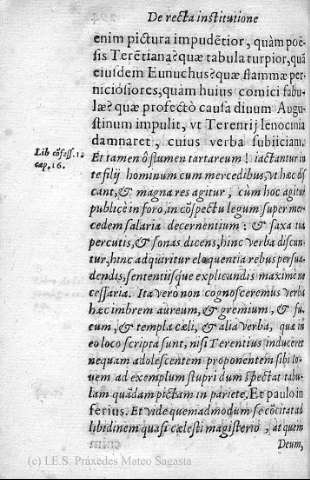 De recta institutione
enim pictura impudētior, quàm poë-
sis Terētiana? quæ tabula turpior, quá
eiusdem Eunuchus? quæ flammæ per-
niciósiores, quàm huius comici fabu-
læ? quæ profectò causa diuum Augu-
stinum impulit, vt Terentij lenocinia
damnaret, cuius verba subijciam.
Lib cōfess. 12
cap, 16.
Et tamen ô flumen tartareum! iactantur in
te filij hominum cum mercedibus, vt hæc dis
cant, & magna res agitur, cùm hoc agitur
publicè in foro, in cōspectu legum super mer-
cedem salaria decernentium: & saxa tua
percutis, & sonas dicens, hinc verba discun-
tur, hinc adquiritur eloquentia rebus persua-
dendis, sententijsque explicandis maximè ne
cessaria. Ita vero non cognosceremus verba
hæc imbrem aureum, & gremium, & fu-
cum, & templa cæli, & alia verba, quæ in
eo loco scripta sunt, nisi Terentius induceret
nequam adolescentem proponentem sibi Io-
uem ad exemplum stupri dum spectat tabu-
lam quādam pictam in pariete. Et paulo in
ferius. Et vide quemadmodum se cōcitat ad
libidinem quasi cælesti magisterio, at quem
Deum,
(c) I.E.S. Práxedes Mateo Sagasta